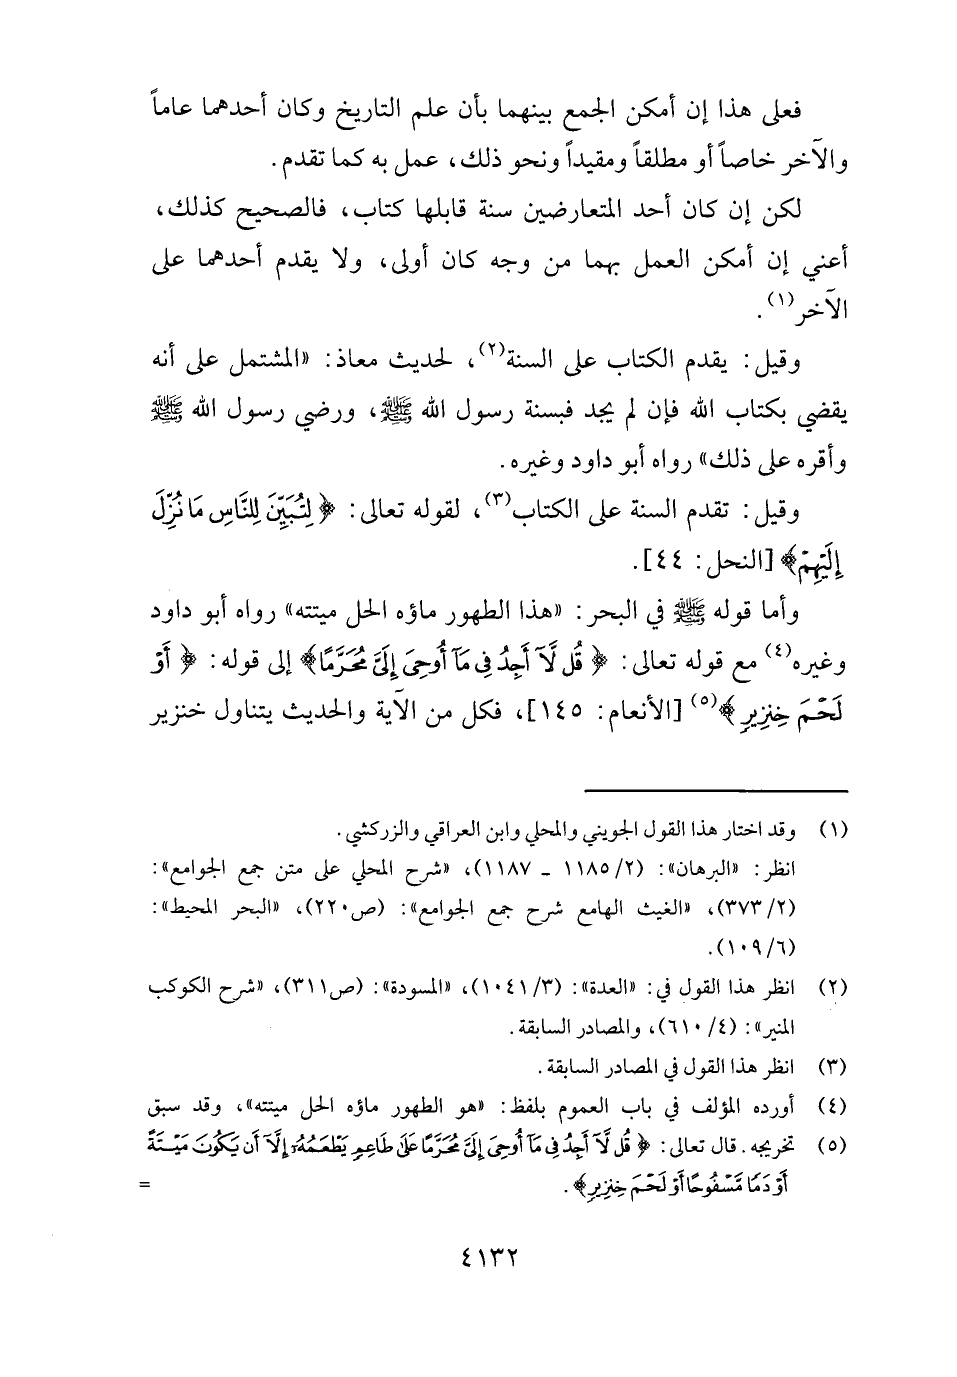 فعلى هذا إن أمكن الجمع بينهما بأن علم التاريخ وكان أحدهما عاماً
والآخر خاصاً أو مطلقاً ومقيداً ونحو ذلك، عمل به كما تقدم.
لكن إن كان أحد المتعارضين سنة قابلها كتاب، فالصحيح كذلك،
أعني إن أمكن العمل بهما من وجه كان أولى، ولا يقدم أحدهما على
الآخر(١).
وقيل: يقدم الكتاب على السنة(٢)، لحديث معاذ: «المشتمل على أنه
يقضي بكتاب الله فإن لم يجد فبسنة رسول الله ﷺ، ورضي رسول الله ﷺ
وأقره على ذلك» رواه أبو داود وغيره.
وقيل: تقدم السنة على الكتاب(٣)، لقوله تعالى: ﴿ لِتُبَيِّنَ لِلنَّاسِ مَا نُزِّلَ
إِلَيْهِمْ﴾ [النحل: ٤٤].
وأما قوله ﷺ في البحر: «هذا الطهور ماؤه الحل ميتته» رواه أبو داود
وغيره(٤) مع قوله تعالى: ﴿ قُل لَّآ أَجِدُ فِى مَآ أُوحِىَ إِلَىَّ مُحَرَّمًا﴾ إلى قوله: ﴿ أَوْ
لَحْمَ خِنزِيرٍ ﴾(٥) [الأنعام: ١٤٥]، فكل من الآية والحديث يتناول خنزير
(١) وقد اختار هذا القول الجويني والمحلي وابن العراقي والزركشي.
انظر: «البرهان»: (٢/ ١١٨٥ ـ ١١٨٧)، «شرح المحلي على متن جمع الجوامع»:
(٢/ ٣٧٣)، «الغيث الهامع شرح جمع الجوامع»: (ص٢٢٠)، «البحر المحيط»:
(٦/ ١٠٩).
(٢) انظر هذا القول في: «العدة»: (٣/ ١٠٤١)، «المسودة»: (ص٣١١)، «شرح الكوكب
المنير»: (٤/ ٦١٠)، والمصادر السابقة.
(٣) انظر هذا القول في المصادر السابقة.
(٤) أورده المؤلف في باب العموم بلفظ: «هو الطهور ماؤه الحل ميتته»، وقد سبق
(٥) تخريجه. قال تعالى: ﴿ قُل لَّآ أَجِدُ فِى مَآ أُوحِىَ إِلَىَّ مُحَرَّمًا عَلَىٰ طَاعِمٍ يَطْعَمُهُۥٓ إِلَّآ أَن يَكُونَ مَيْتَةً
أَوْ دَمًا مَّسْفُوحًا أَوْ لَحْمَ خِنزِيرٍ﴾. =
٤١٣٢